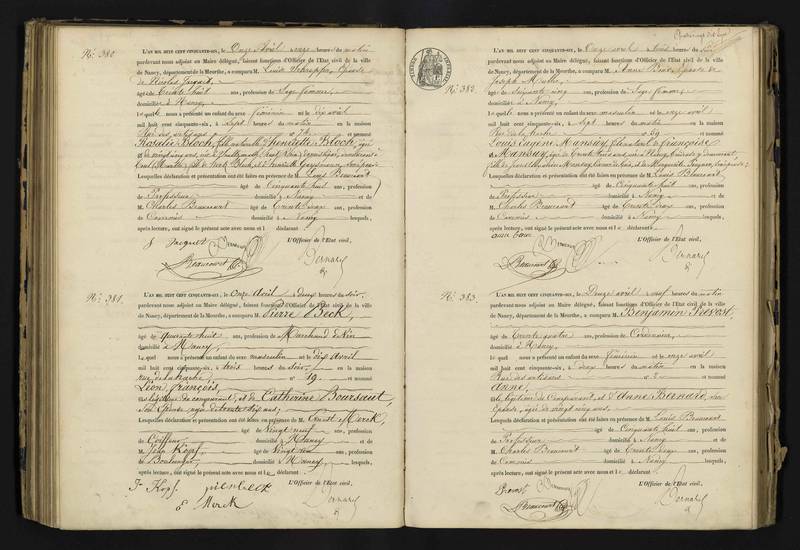 N.° 380.
L'AN MIL HUIT CENT CINQUANTE-SIX, le Onze Avril à onze heures du matin
pardevant nous adjoint au Maire délégué, faisant fonctions d'Officier de l'Etat civil de la ville
de Nancy, département de la Meurthe, a comparu M. Louise Epouse
de Nicolas Jacquot,
âgé de Trente huit ans, profession de Sage femme,
domicilié à Nancy,
lequel nous a présenté un enfant du sexe féminin né le dix avril
mil huit cent cinquante-six, à sept heures du matin en la maison
Rue n.° et nommé
Rosalie Bloch, fille naturelle d'henriette Bloch, âgée
de vingt cinq ans,
Lesquelles déclaration et présentation ont été faites en présence de M. Louis Beaucourt
âgé de Cinquante huit ans, profession
de Professeur domicilié à Nancy et de
M. Charles Beaucourt âgé de Trente trois ans, profession
de Commis domicilié à Nancy lesquels,
après lecture, ont signé le présent acte avec nous et le déclarant
Jacquot
Beaucourt
L'Officier de l'Etat civil,
Bernard
N.° 381.
L'AN MIL HUIT CENT CINQUANTE-SIX, le Onze Avril à Deux heures du soir,
pardevant nous adjoint au Maire délégué, faisant fonctions d'Officier de l'Etat civil de la ville
de Nancy, département de la Meurthe, a comparu M. Pierre Beck,
âgé de Quarante huit ans, profession de Marchand de Vin
domicilié à Nancy,
lequel nous a présenté un enfant du sexe masculin né le dix Avril
mil huit cent cinquante-six, à trois heures du soir, en la maison
rue n.° 19 et nommé
Léon, François,
fils légitime du comparant, et de Catherine Boursaut,
son Epouse, âgée de trente ans,
Lesquelles déclaration et présentation ont été faites en présence de M. Ernest Merck,
âgé de Vingt neuf ans, profession
de Coiffeur domicilié à Nancy et de
M. Jean Kopf âgé de Vingt ans, profession
de Boulanger domicilié à Nancy lesquels,
après lecture, ont signé le présent acte avec nous et le déclarant
J. Kopf
E Merck
L'Officier de l'Etat civil,
Bernard
N.° 382.
L'AN MIL HUIT CENT CINQUANTE-SIX, le Onze avril à trois heures du soir
pardevant nous adjoint au Maire délégué, faisant fonctions d'Officier de l'Etat civil de la ville
de Nancy, département de la Meurthe, a comparu M. Anne Epouse de
Joseph
âgé de Soixante cinq ans, profession de Sage femme,
domicilié à Nancy,
lequel nous a présenté un enfant du sexe masculin né le onze avril
mil huit cent cinquante-six, à sept heures du matin en la maison
Rue n.° 39 et nommé
Louis Eugène Mansuy, fils naturel de françoise
Mansuy, âgée de trente trois ans,
Lesquelles déclaration et présentation ont été faites en présence de M. Louis Beaucourt
âgé de Cinquante huit ans, profession
de Professeur domicilié à Nancy et de
M. Charles Beaucourt âgé de Trente trois ans, profession
de Commis domicilié à Nancy lesquels,
après lecture, ont signé le présent acte avec nous et le déclarant
Beaucourt
L'Officier de l'Etat civil,
Bernard
N.° 383.
L'AN MIL HUIT CENT CINQUANTE-SIX, le Douze avril à neuf heures du matin
pardevant nous adjoint au Maire délégué, faisant fonctions d'Officier de l'Etat civil de la ville
de Nancy, département de la Meurthe, a comparu M. Benjamin Prevost,
âgé de Trente quatre ans, profession de Cordonnier,
domicilié à Nancy,
lequel nous a présenté un enfant du sexe féminin né le onze avril
mil huit cent cinquante-six, à deux heures du matin en la maison
Rue des artisans n.° 2 et nommé
Anne,
fille légitime du Comparant, et d'Anne Bernard, son
épouse, âgée de vingt cinq ans,
Lesquelles déclaration et présentation ont été faites en présence de M. Louis Beaucourt
âgé de Cinquante huit ans, profession
de Professeur domicilié à Nancy et de
M. Charles Beaucourt âgé de Trente trois ans, profession
de Commis domicilié à Nancy lesquels,
après lecture, ont signé le présent acte avec nous et le déclarant
Prevost
Beaucourt
L'Officier de l'Etat civil,
Bernard